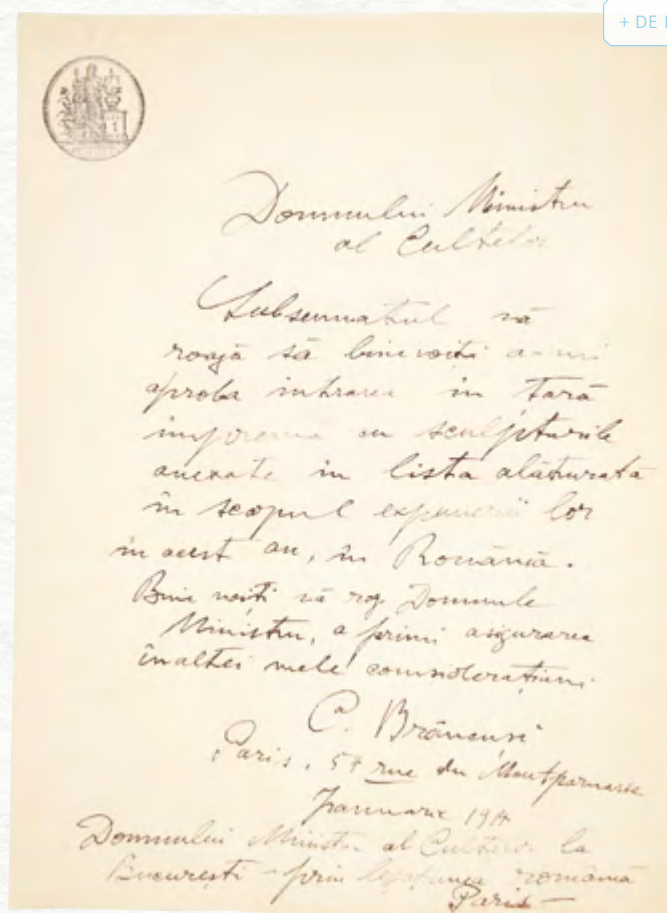 + DE
Domnului Ministru
al Cultelor
Subsemnatul vă
roagă să binevoiți a-mi
aproba intrarea în țară
împreună cu sculpturile
anexate în lista alăturată
în scopul expunerii lor
în acest an, în România.
Bine voiți vă rog Domnule
Ministru, a primi asigurarea
înaltei mele considerațiuni.
C. Brâncuși
Paris, 54 rue du Montparnasse
Januarie
Domnului Ministru al Cultelor la
București - prin legațiunea română
Paris -